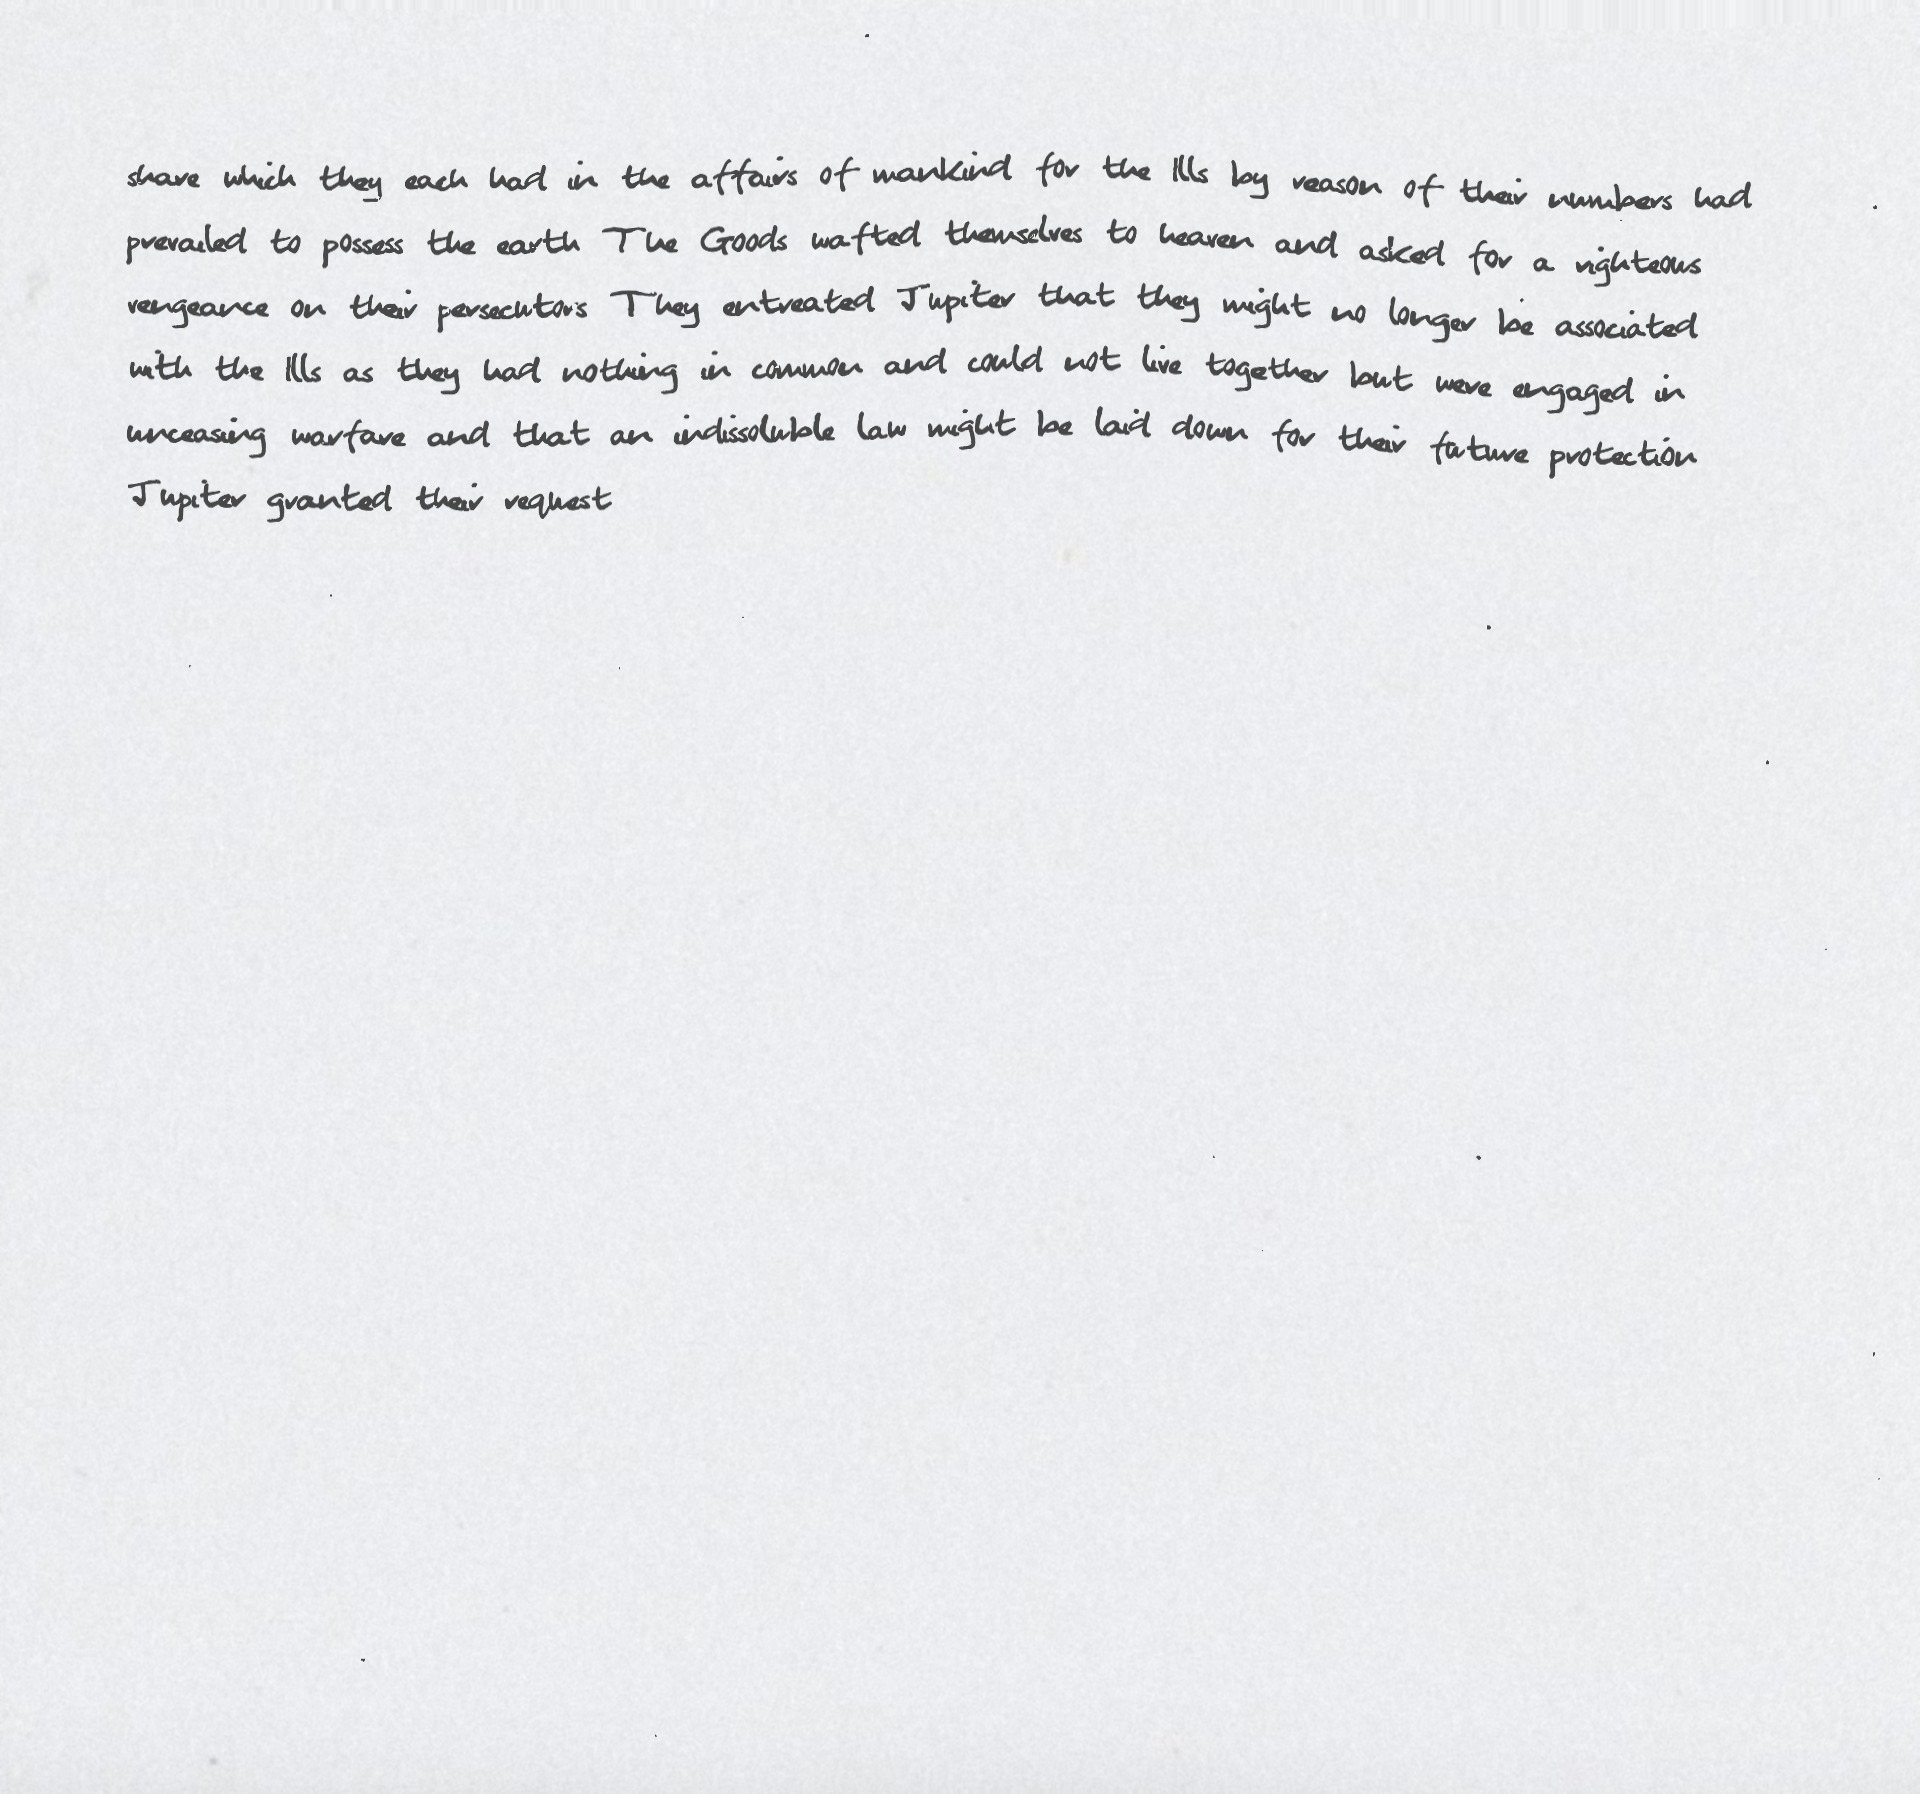 share which they each had in the affairs of mankind for the Ills by reason of their numbers had
prevailed to possess the earth The Goods wafted themselves to heaven and asked for a righteous
vengeance on their persecutors They entreated Jupiter that they might no longer be associated
with the Ills as they had nothing in common and could not live together but were engaged in
unceasing warfare and that an indissoluble law might be laid down for their future protection
Jupiter granted their request